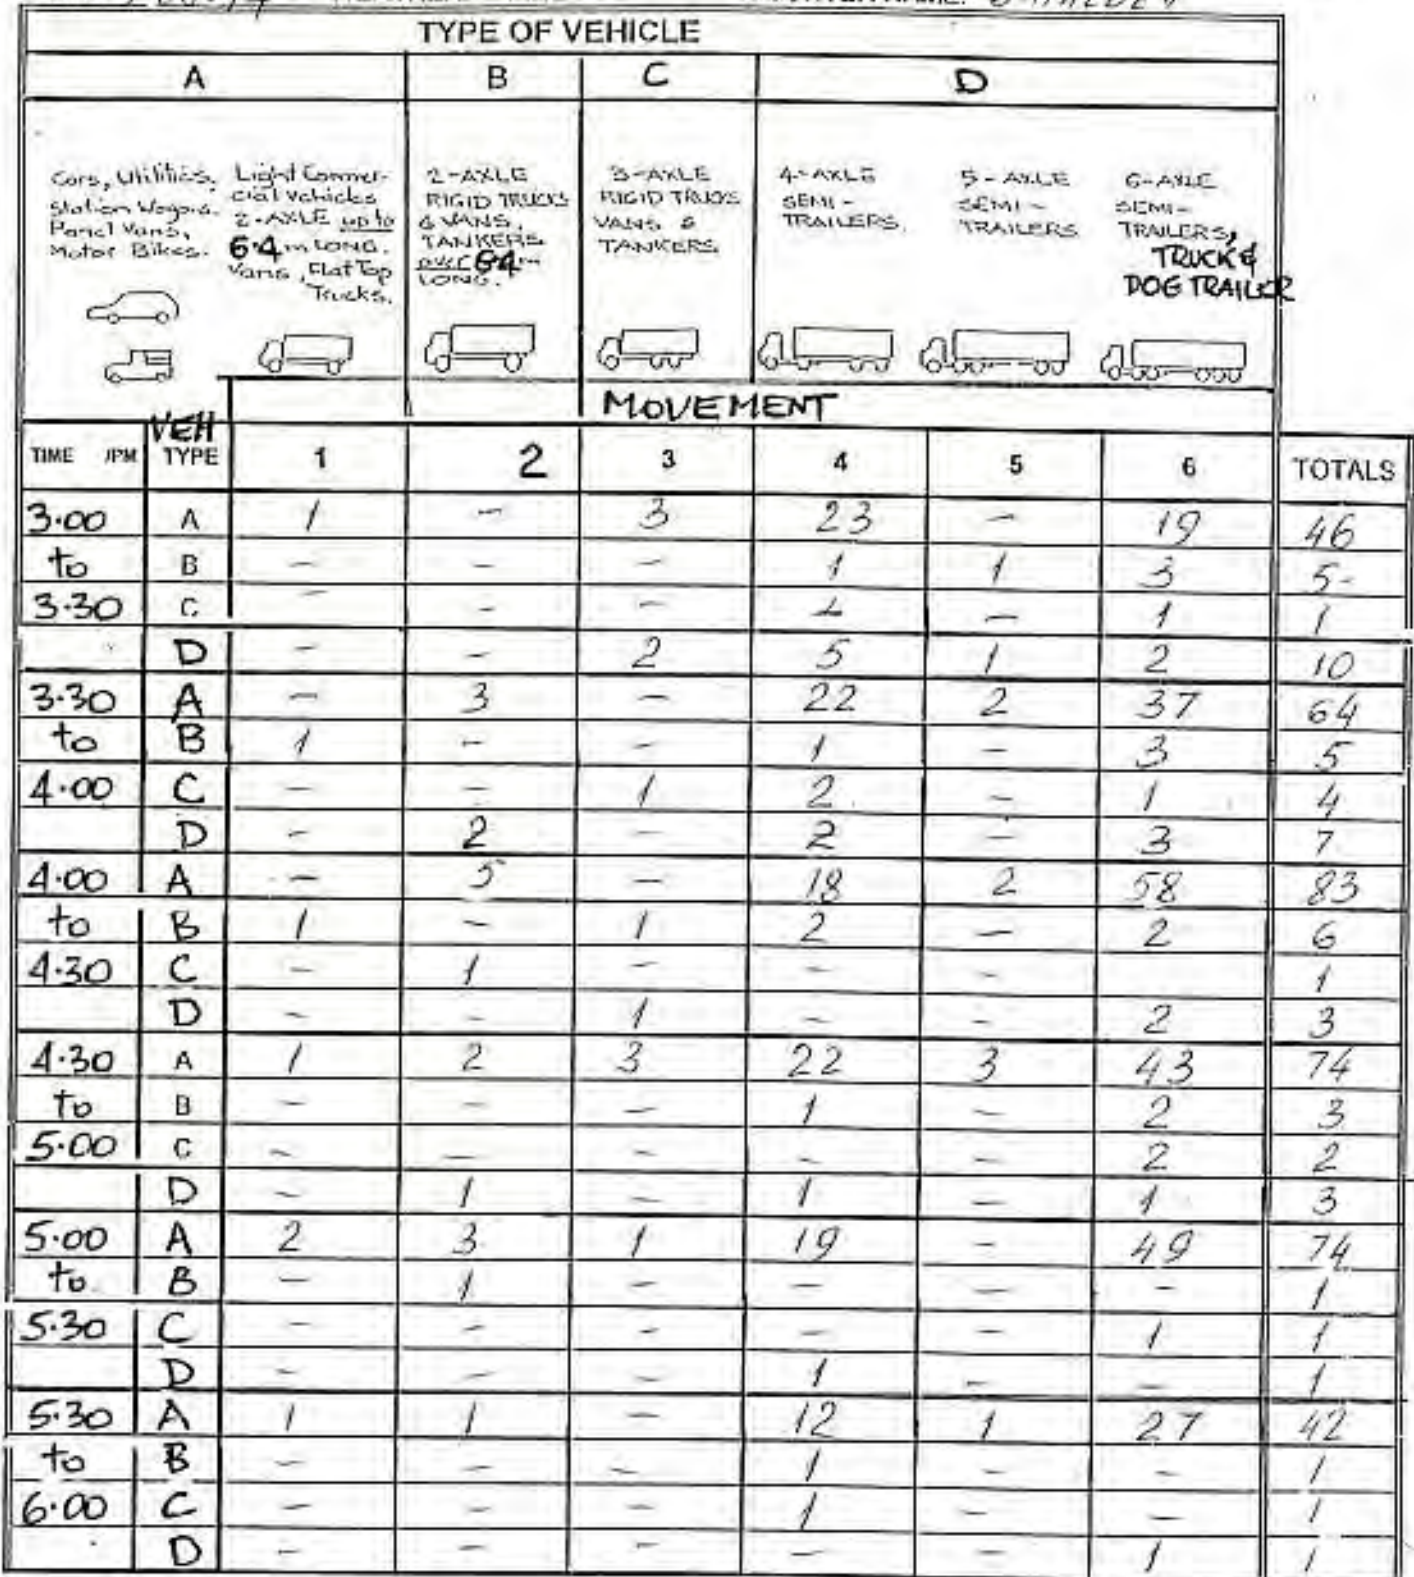 TYPE OF VEHICLE
A B C D
Cars, Utilities, Station Wagons, Panel Vans, Motor Bikes.
Light Commercial Vehicles 2-AXLE up to 6.4 m LONG. Vans, Flat Top Trucks.
2-AXLE RIGID TRUCKS & VANS, TANKERS over 6.4 m LONG.
3-AXLE RIGID TRUCKS VANS & TANKERS
4-AXLE SEMI-TRAILERS.
5-AXLE SEMI-TRAILERS
6-AXLE SEMI-TRAILERS, TRUCK & DOG TRAILER
MOVEMENT
TIME /PM VEH TYPE 1 2 3 4 5 6 TOTALS
3.00 A 1 - 3 23 - 19 46
to B - - - 1 1 3 5-
3.30 C - - - - 1 1
D - - 2 5 1 2 10
3.30 A - 3 - 22 2 37 64
to B 1 - - 1 - 3 5
4.00 C - - 1 2 - 1 4
D - 2 - 2 - 3 7
4.00 A - 5 - 18 2 58 83
to B 1 - 1 2 - 2 6
4.30 C - 1 - - - 1
D - - 1 - - 2 3
4.30 A 1 2 3 22 3 43 74
to B - - - 1 - 2 3
5.00 C - - - - - 2 2
D - 1 - 1 - 1 3
5.00 A 2 3 1 19 - 49 74
to B - 1 - - - - 1
5.30 C - - - - - 1 1
D - - - 1 - - 1
5.30 A 1 1 - 12 1 27 42
to B - - - 1 - - 1
6.00 C - - - 1 - - 1
D - - - - - 1 1